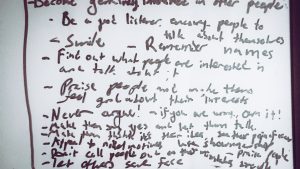 - Become genuinely interested in other people:
- Be a good listener, encourage people to
talk about themselves
- Smile - Remember names
- Find out what people are interested in
and talk about it
- Praise people and make them
feel good about their interests
- Never argue! - if you are wrong, own it!
- Make them and let them talk
- Make them think it's their idea,
- Appeal to noble motives, use showmanship
- Don't call people out on their Praise people
- Let others save face